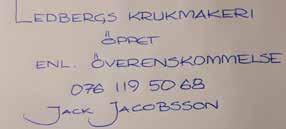 LEDBERGS KRUKMAKERI
ÖPPET
ENL. ÖVERENSKOMMELSE
076 119 50 68
JACK JACOBSSON